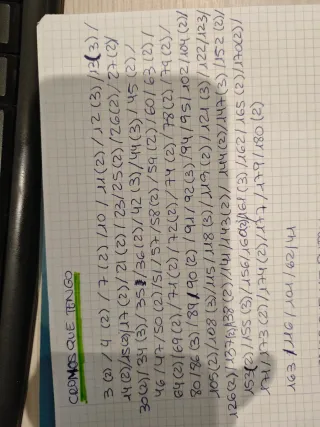 CROMOS QUE TENGO
3 (2) / 4 (2) / 7 (2) / 10 / 11 (2) / 12 (3) / 13 (3) /
14 (2) / 15(2) / 17 (2) / 21 (2) / 23 / 25 (2) / 26(2) / 27 (2) /
30(2) / 34 (3) / 35 / 36(2) / 42 (3) / 44 (3) / 45 (2) /
46 / 47 / 50 (2) / 51 / 57 / 58(2) / 59 (2) / 60 / 63 (2) /
64 (2) / 69 (2) / 71 (2) / 72(2) / 74 (2) / 78 (2) / 79 (2) /
80 / 86 (3) / 89 / 90 (2) / 91 / 92 (3) / 94 / 95 / 102 / 104 (2) /
105 (2) / 108 (3) / 115 / 118 (3) / 119 (2) / 121 (3) / 122 / 123 /
126 (2) / 137(2) / 138 (2) / 141 / 143 (2) / 144 (2) / 147 (3) / 152 (2) /
153 (2) / 155 (3) / 156 / 160(2) / 161 (3) / 162 / 165 (2) / 170(2) /
171 / 173 (2) / 174 (2) / 177 / 179 / 180 (2)
163 / 116 / 101 / 62 / 41